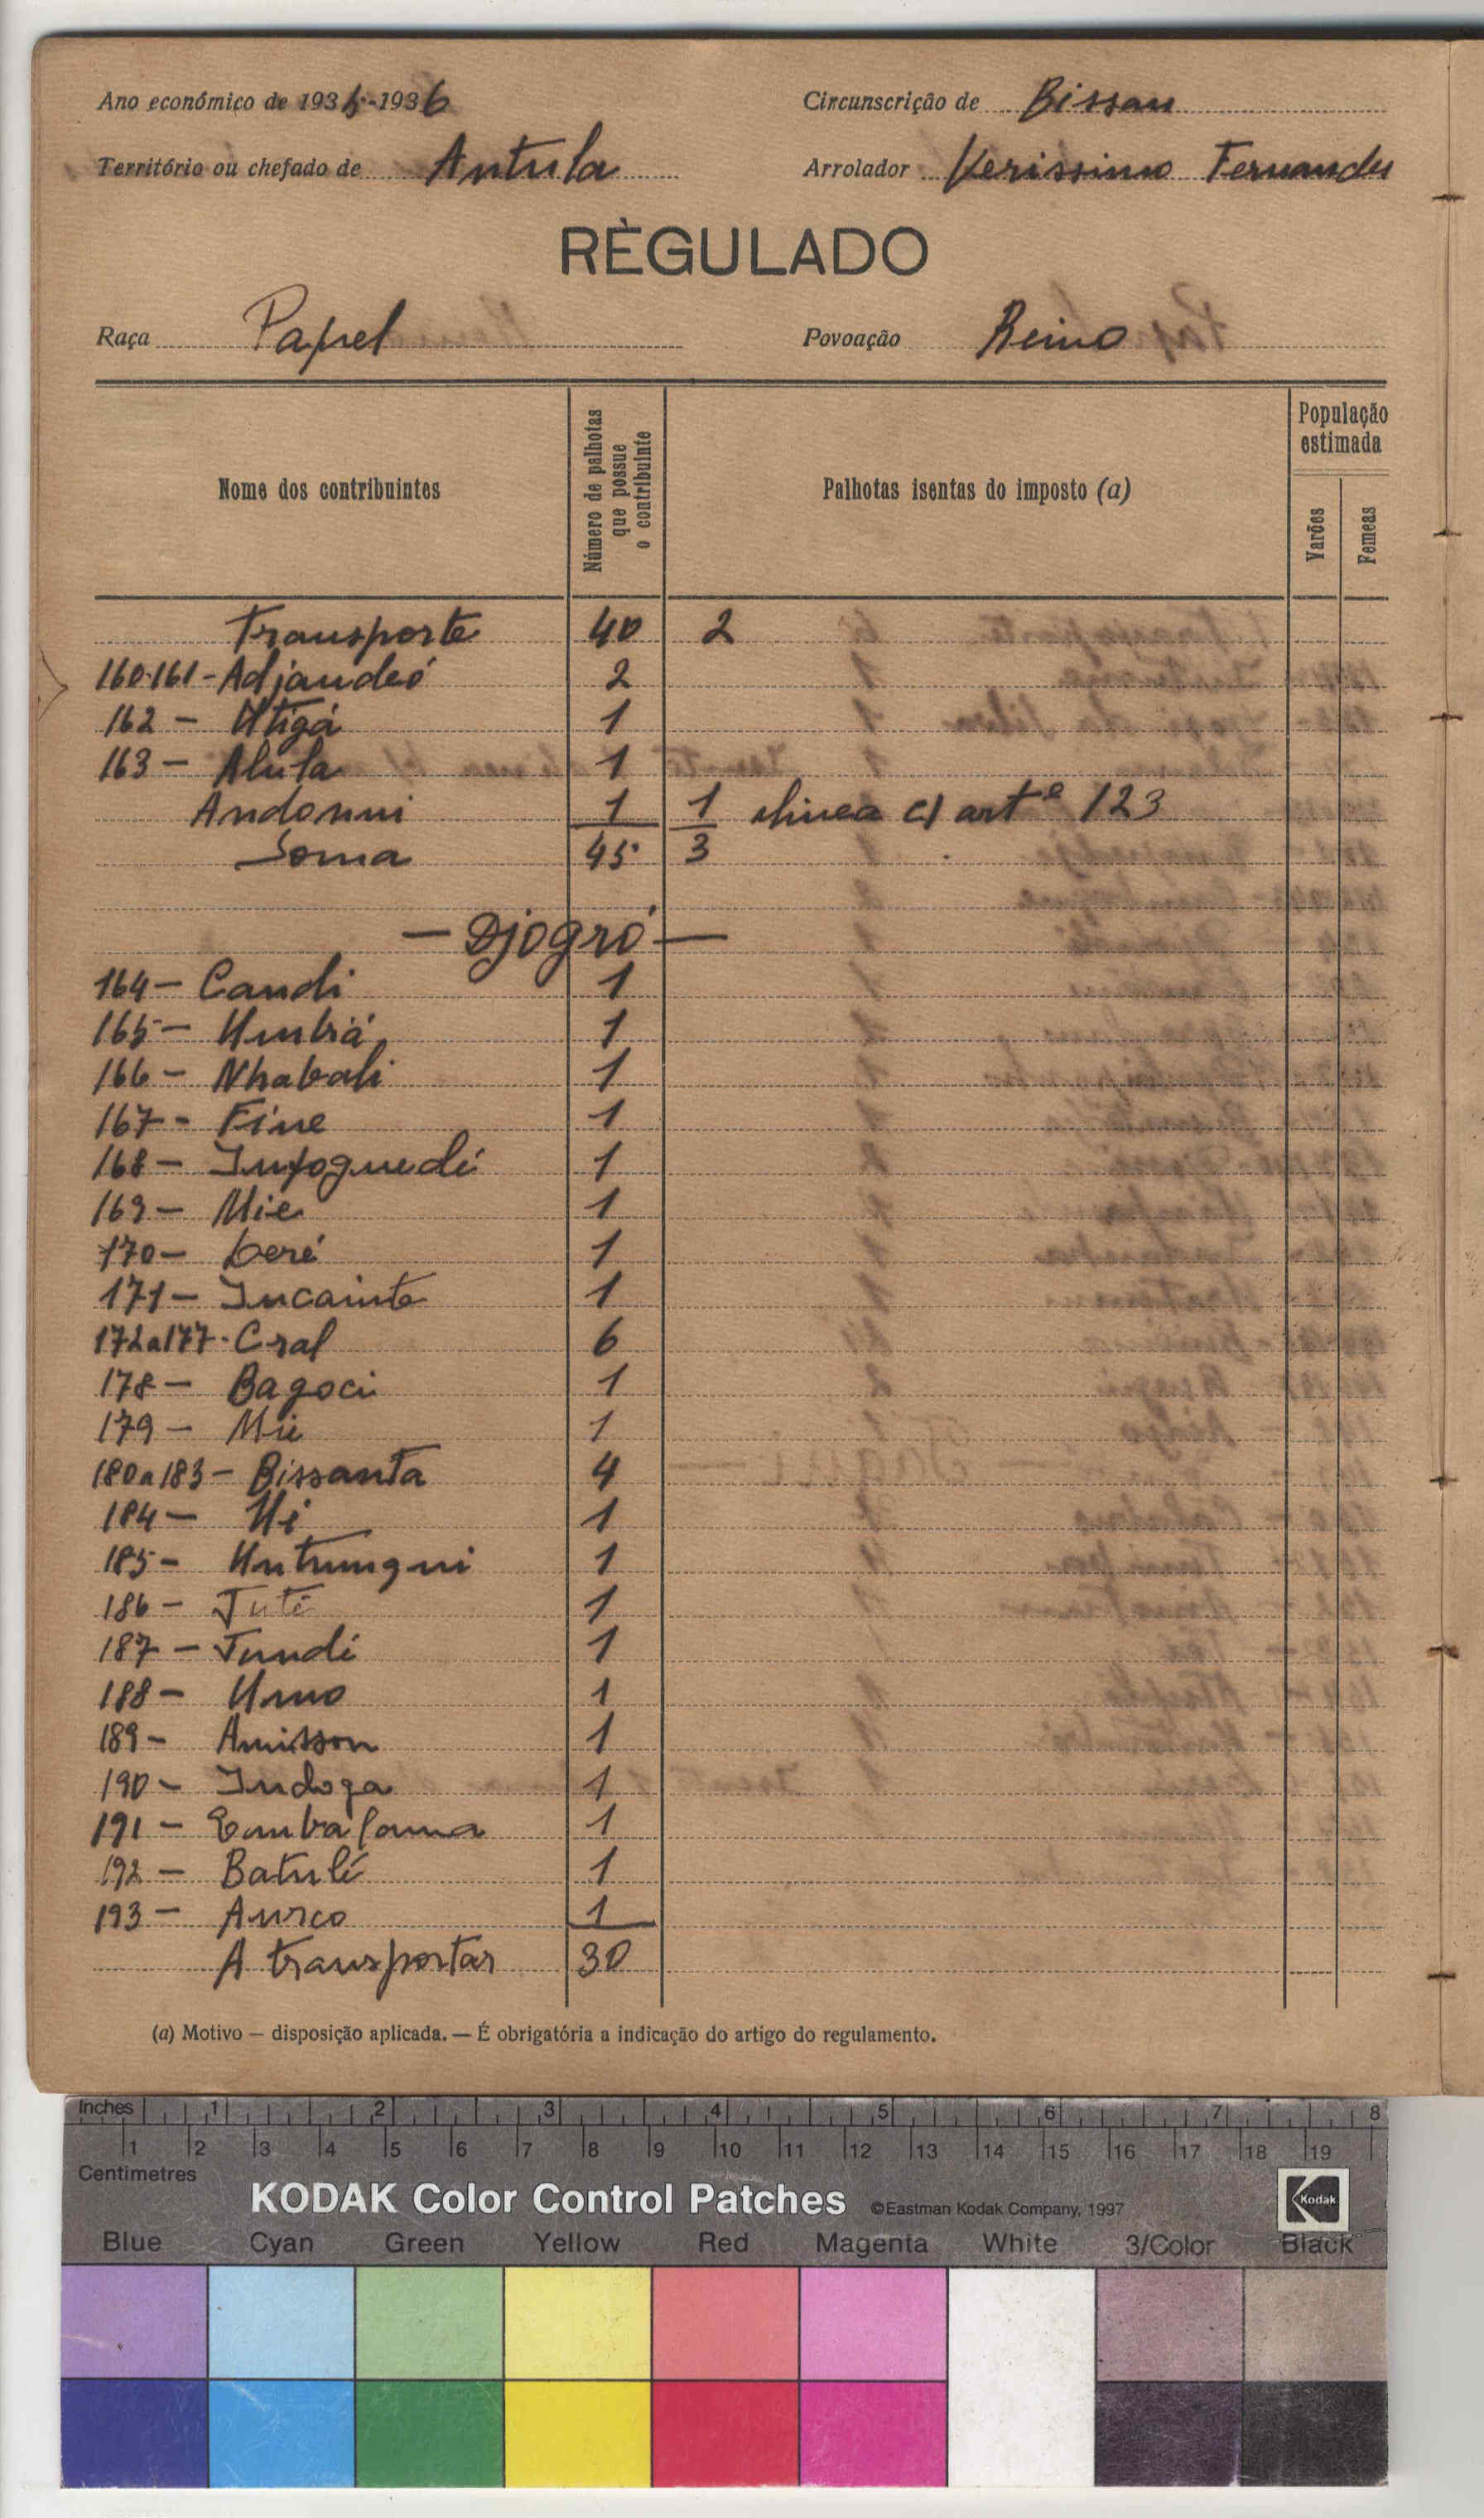 Ano económico de 1935-1936 Circunscrição de Bissau
Território ou chefado de Antula Arrolador Verissimo Fernandes
RÈGULADO
Raça Papel Povoação Reino
Nome dos contribuintes
Número de palhotas que possue o contribuinte
Palhotas isentas do imposto (a)
População estimada
Varões
Femeas
Transporte 40 2
160-161 - Adjandeó 2
162 - Utigá 1
163 - Alula 1
Andonni 1 1 alinea c) artº 123
Soma 45 3
- Djogró -
164 - Candi 1
165 - Umbiá 1
166 - Nhabali 1
167 - Fine 1
168 - Infoguedé 1
169 - Mie 1
170 - Leré 1
171 - Incainte 1
172a177 - Cral 6
178 - Bagoci 1
179 - Mii 1
180a183 - Bissanta 4
184 - Ui 1
185 - Untungui 1
186 - Juté 1
187 - Jundé 1
188 - Umo 1
189 - Amisson 1
190 - Indoga 1
191 - 1
192 - Batulé 1
193 - Aurco 1
A transportar 30
(a) Motivo — disposição aplicada. — É obrigatória a indicação do artigo do regulamento.
Inches 1 2 3 4 5 6 7 8
1 2 3 4 5 6 7 8 9 10 11 12 13 14 15 16 17 18 19
Centimetres
KODAK Color Control Patches ©Eastman Kodak Company, 1997 Kodak
Blue Cyan Green Yellow Red Magenta White 3/Color Black